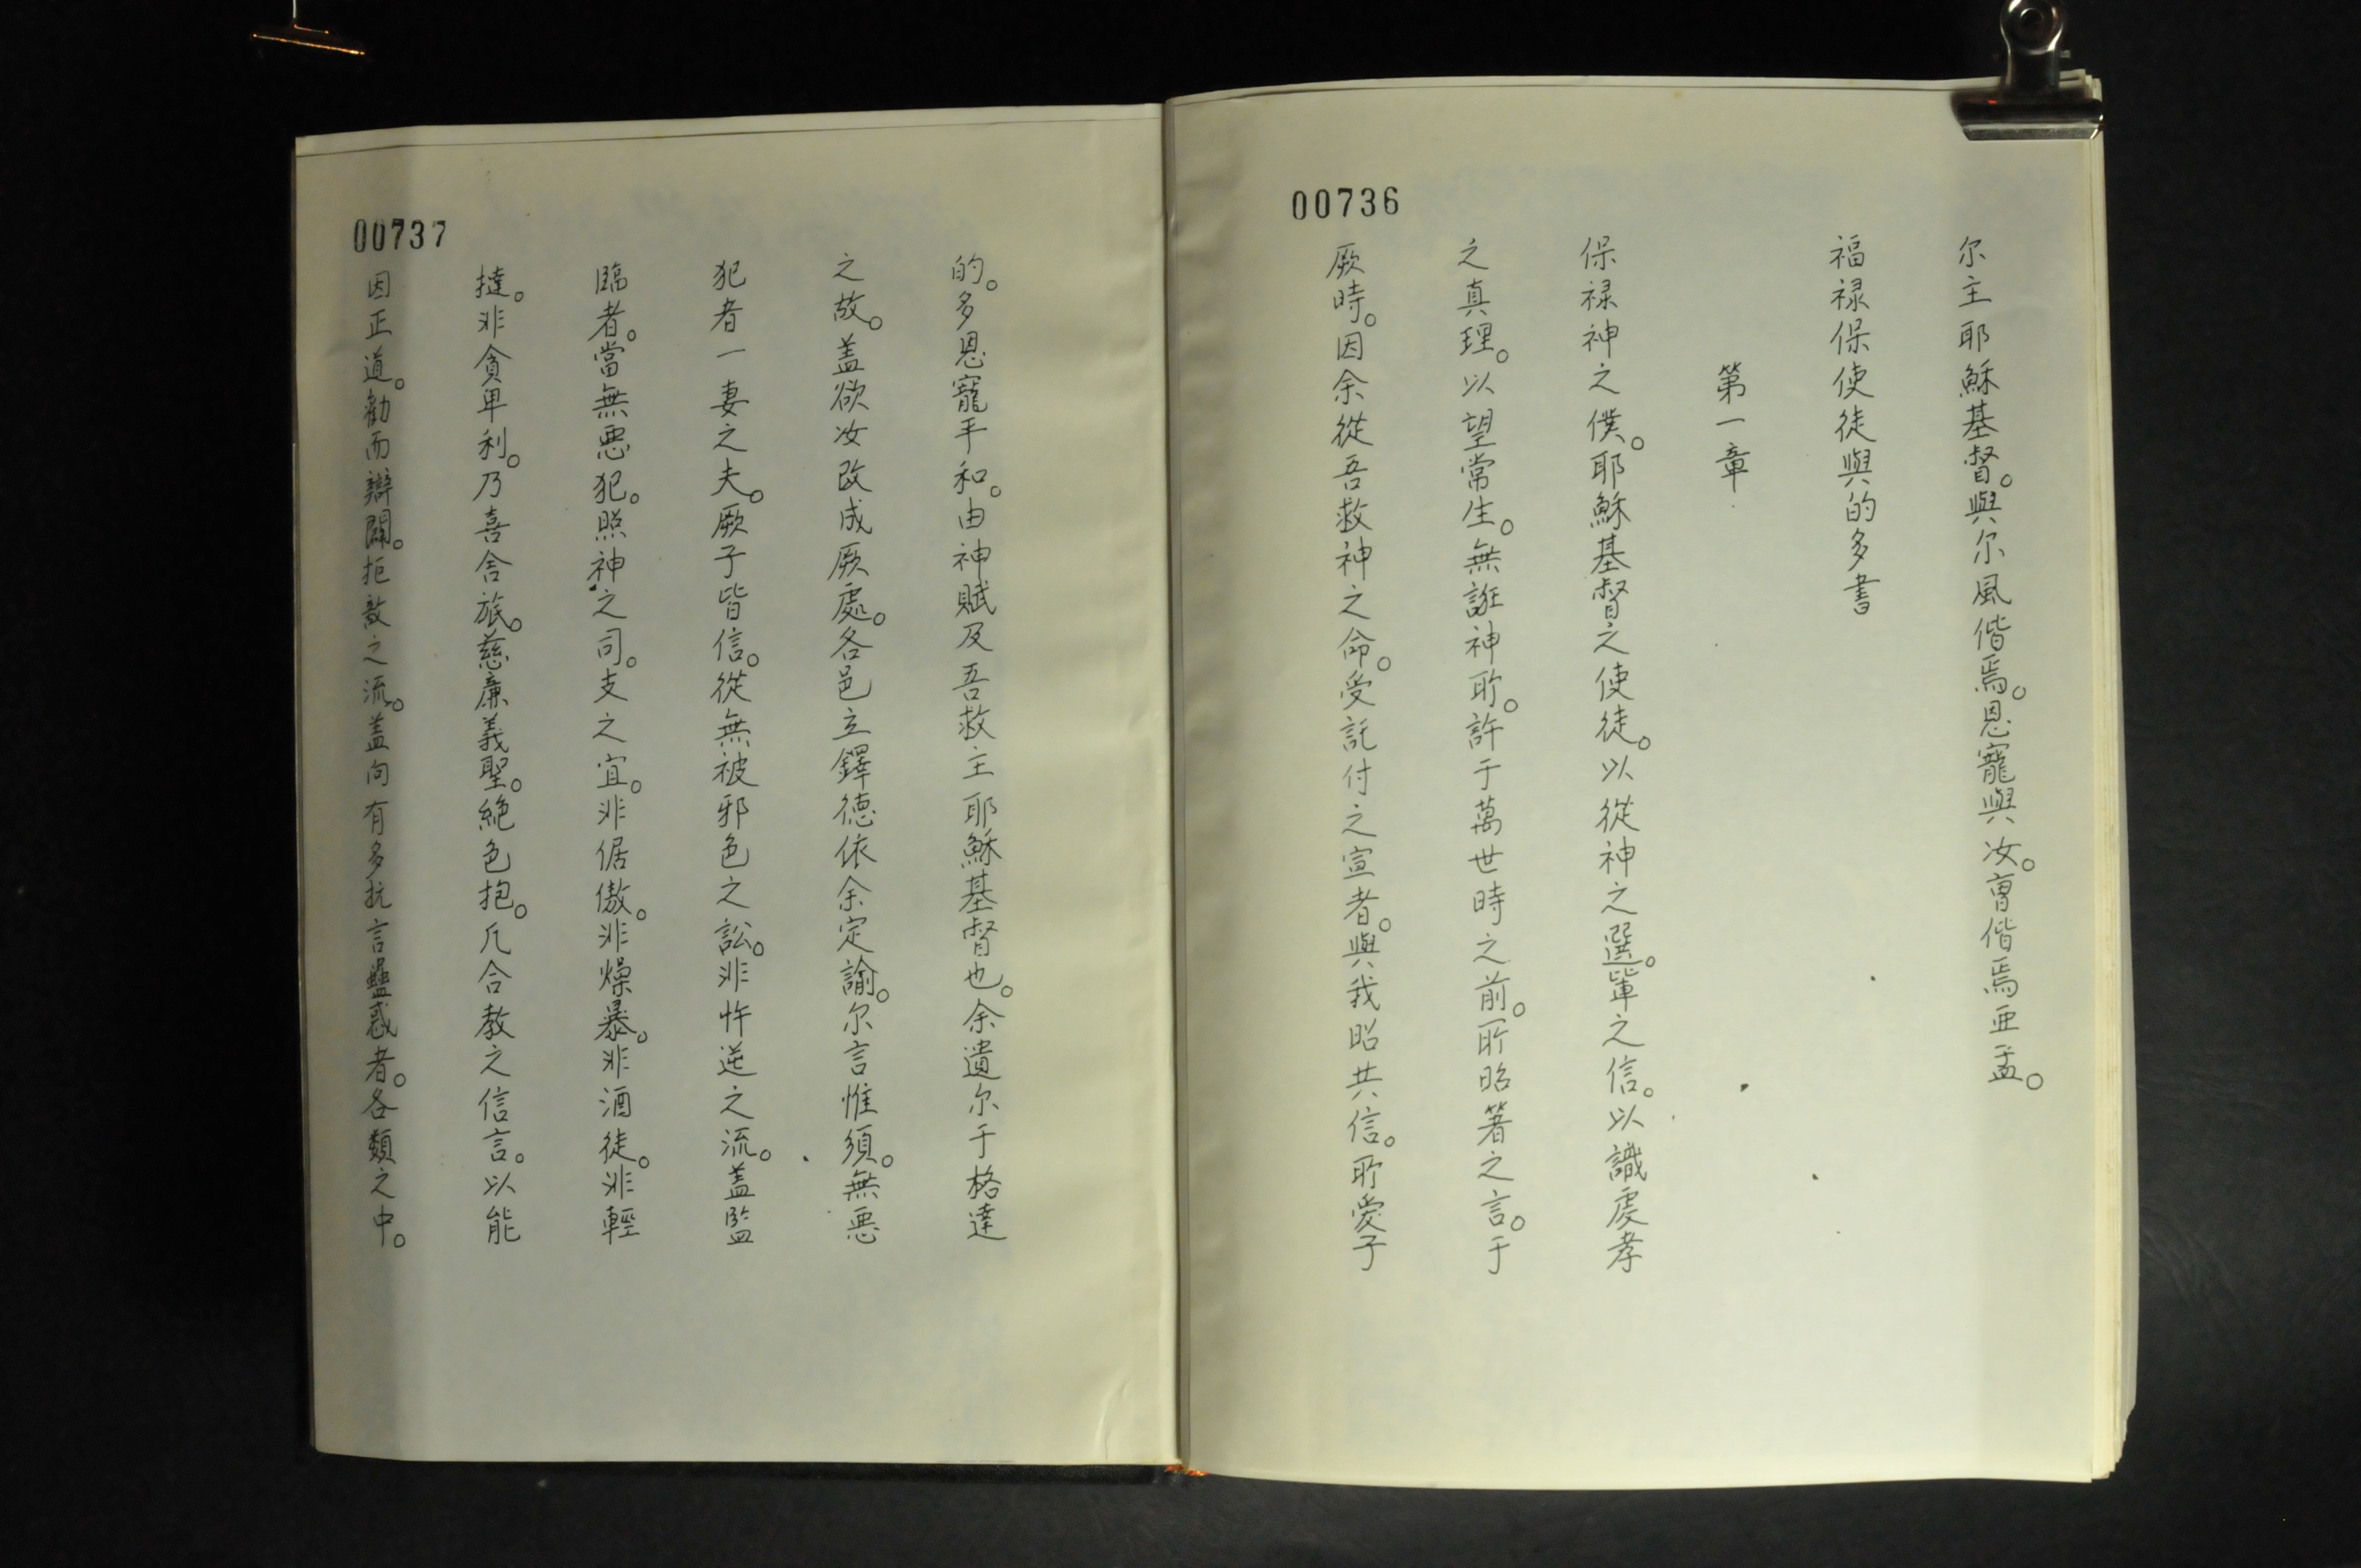 00736
尔主耶穌基督。與尔風偕焉。恩寵與汝。曺偕焉亜孟。
福禄保使徒與的多書
第一章
保禄神之僕。耶穌基督之使徒。以從神之選軰之信。以識虔孝
之真理。以望常生。無誑神所。許于萬世時之前。所昭著之言。于
厥時。因余從吾救神之命。受託付之宣者。與我昭共信。所愛子
00737
的。多恩寵平和。由神賦及吾救主耶穌基督也。余遺尔于格達
之故。盖欲汝改成厥處。各邑立鐸德依余定諭。尔言惟須。無悪
犯者一妻之夫。厥子皆信。從無被邪色之訟。非忤逆之流。盖監
臨者。當無悪犯。照神之司。支之宜。非倨傲。非燥暴。非酒徒。非輕
撻。非貪卑利。乃喜舍旅。慈廉義聖。絶色抱。凡合教之信言。以能
因正道。勧而辯闢。拒敌之流。盖向有多抗言蠱惑者。各類之中。